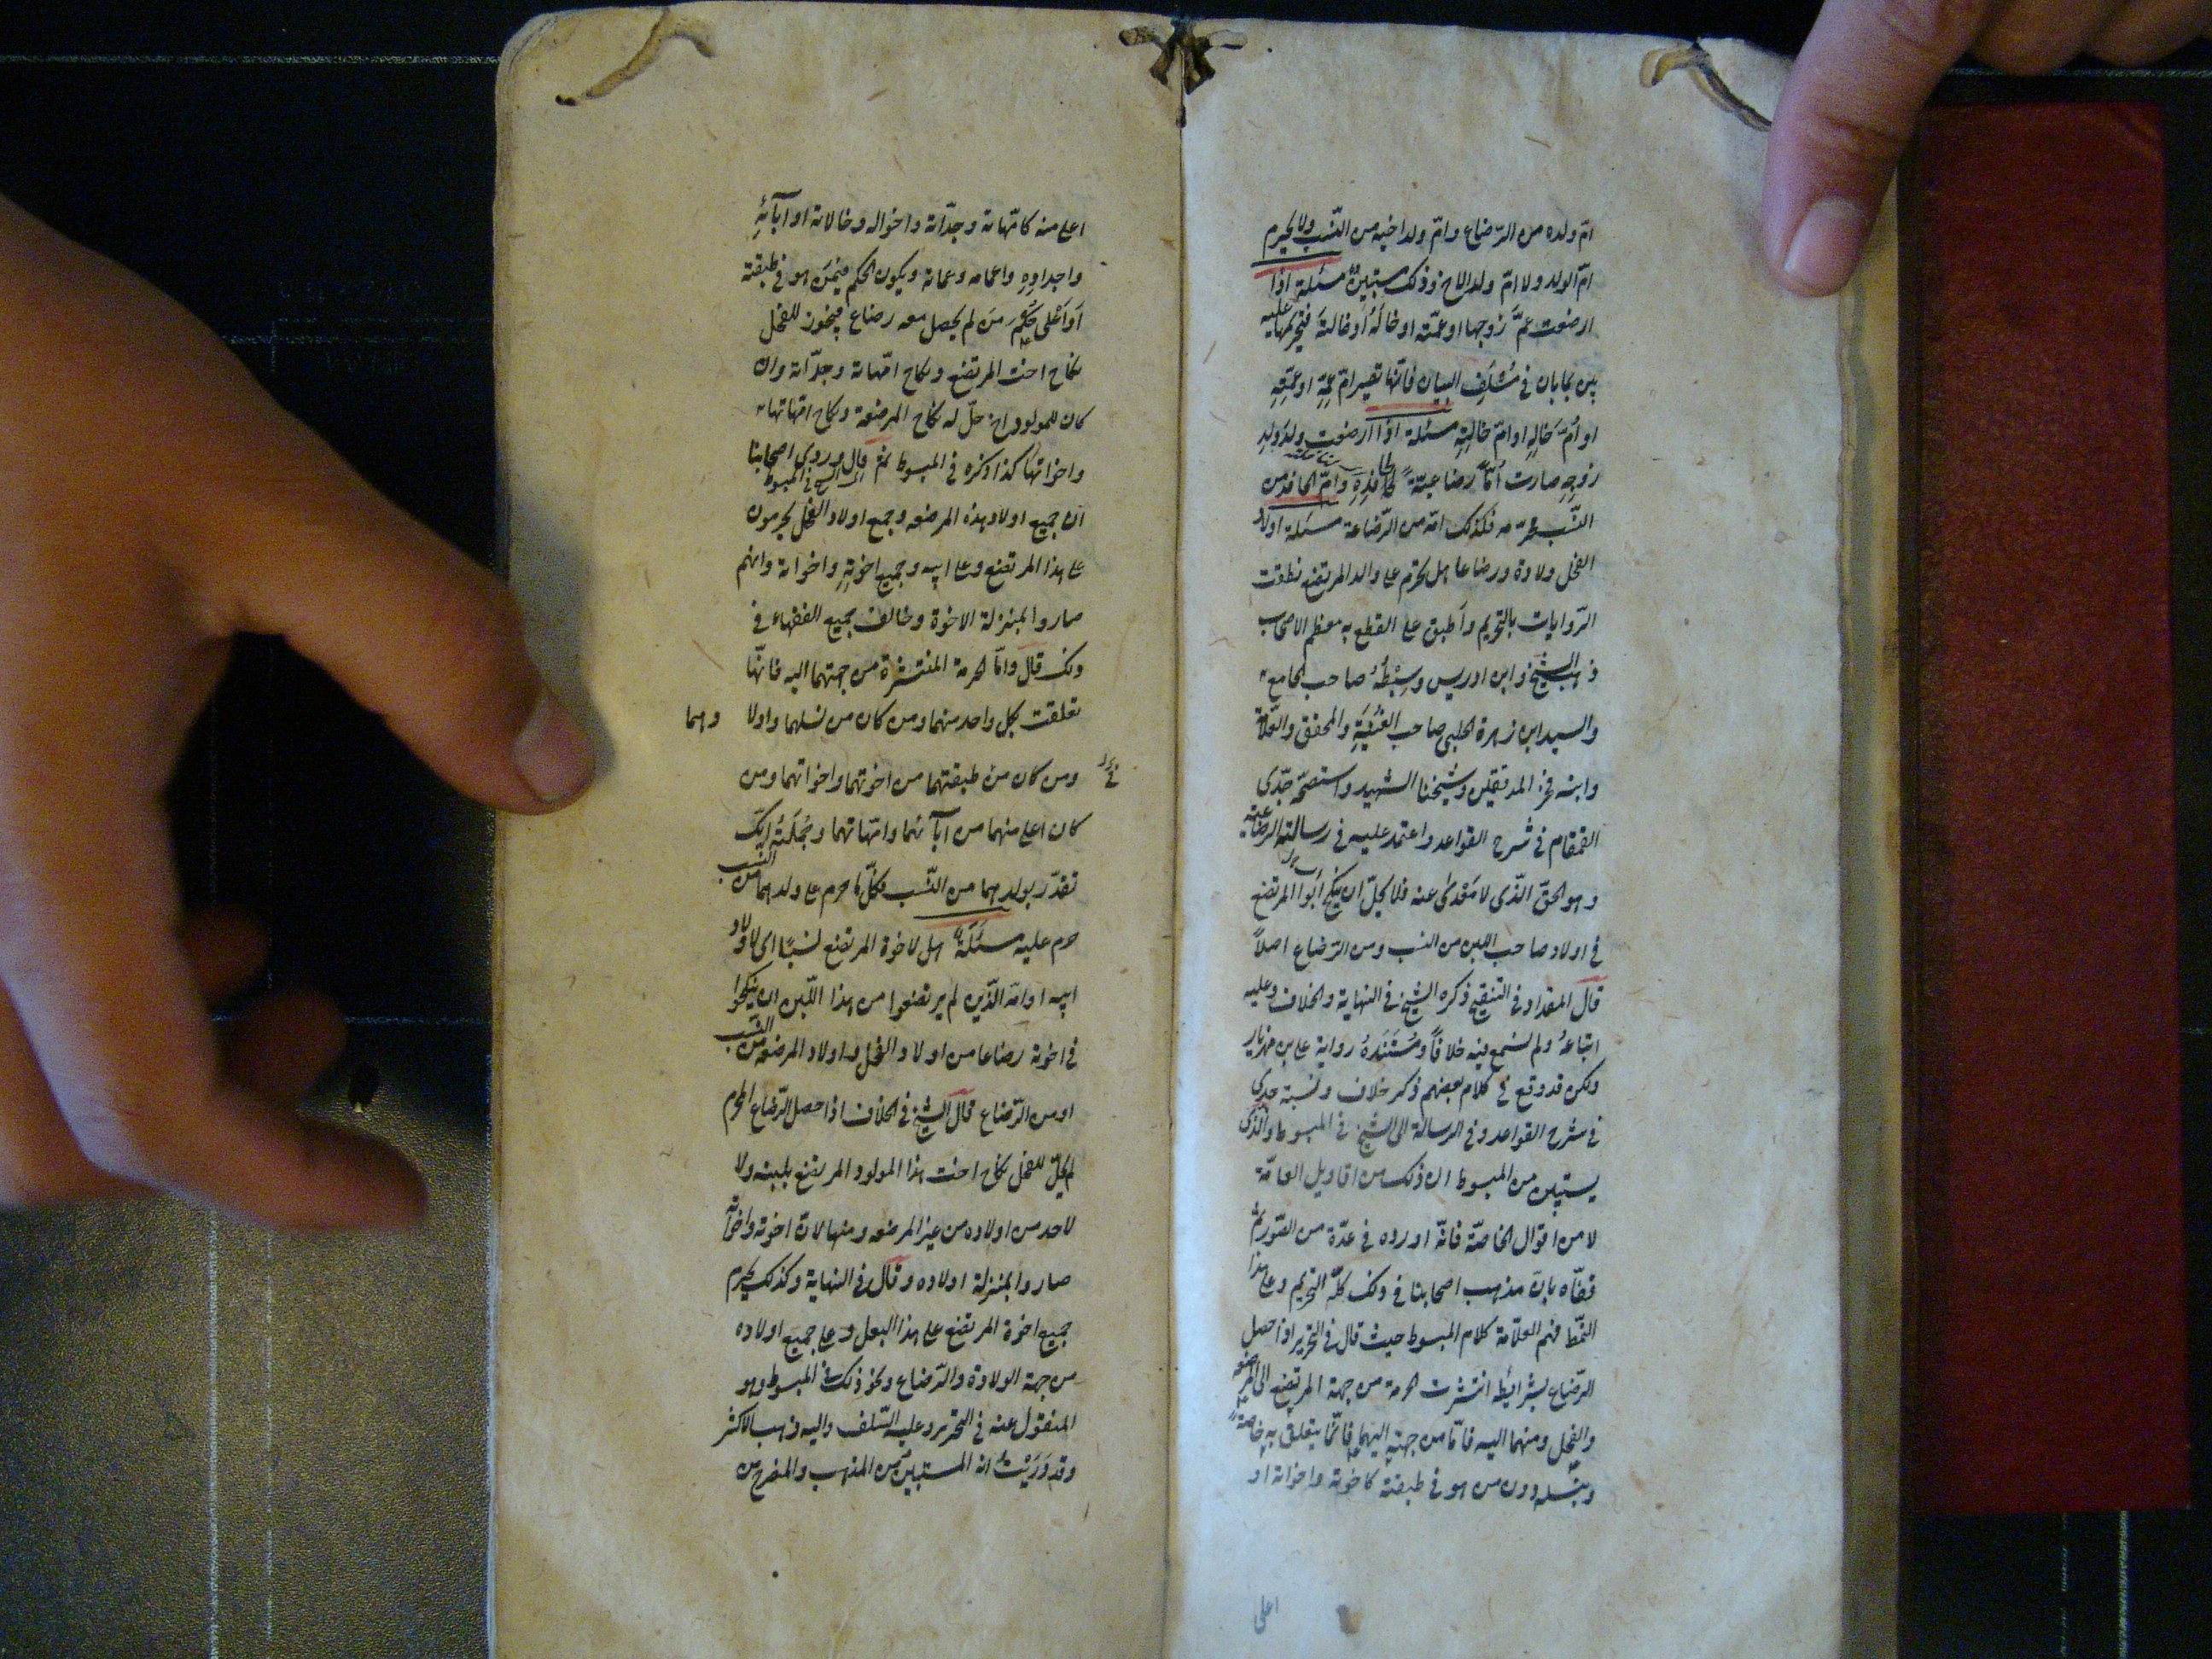 امّ ولده من الرّضاع وامّ ولد اخيه من النّسب ولا يحرم
امّ الولد ولا امّ ولد الاخ وذلك ستبين مسئلة اذا
ارضعت عمّ زوجها او عمّته او خاله او خالته فيحرمها عليه
بابان في البيان فانّها تصير امّ عمّه او عمّته
او امّ خاله او امّ خالته مسئلة اذا ارضعت ولد ولد
زوجه صارت امّا رضاعيّة لحافده وامّ الحافد من
النّسب محرّمه فكذلك امّه من الرّضاعة مسئلة اولاد
الفحل ولادة ورضاعا هل تحرم على والد المرتضع نطقت
الرّوايات بالتحريم وأطبق على القطع به معظم الاصحاب
ذهب الشيخ وابن ادريس وسبطه صاحب الجامع
والسيد ابن زهرة الحلبي صاحب الغنية والمحقق والعلّامة
وابنه فخر المدققين وشيخنا الشهيد واستصحّه جدّي
القمقام في شرح القواعد واعتمد عليه في رسالته الرضاعيّة
وهو الحقّ الّذي لا معدى عنه فلا يحلّ ان ينكح أبو المرتضع
في اولاد صاحب اللبن من النسب ومن الرّضاع اصلاً
قال المقداد في التنقيح ذكره الشيخ في النهاية والخلاف وعليه
اتباعه ولم نسمع فيه خلافاً ومستنده رواية علي بن مهزيار
ولكن قد وقع في كلام بعضهم ذكر خلاف ونسبة جدي
في شرح القواعد وفي الرسالة الى الشيخ في المبسوط والّذي
يستبين من المبسوط ان ذلك من اقاويل العامّة
لا من اقوال الخاصّة فانّه اورده في عدّة من الصّور ثمّ
قفّاه بانّ مذهب اصحابنا في ذلك كلّه التحريم وعلى هذا
النّمط فهم العلّامة كلام المبسوط حيث قال في التحرير اذا حصل
الرّضاع بشرائطه انتشرت الحرمة من جهة المرتضع الى المرضعه
والفحل ومنهما اليه فامّا من جهته اليهما فانّما يتعلق به خاصة
وبنسله دون من هو في طبقته كاخوته واخواته او
اعلى
اعلى منه كامّهاته وجدّاته واخواله وخالاته او آبائه
واجداده واعمامه وعمّاته ويكون الحكم فيمن هو في طبقته
أو أعلى حكم من لم يحصل معه رضاع فيجوز للفحل
نكاح اخت المرتضع ونكاح امّهاته وجدّاته وان
كان للمولود اخ حلّ له نكاح المرضعة ونكاح امّهاتها
واخواتها كذا ذكره في المبسوط ثمّ قال وروى اصحابنا
ان جميع اولاد هذه المرضعه وجميع اولاد الفحل يحرمون
على هذا المرتضع وعلى ابيه وجميع اخوته واخواته وانهم
صاروا بمنزلة الاخوة وخالف جميع الفقهاء في
ذلك قال وامّا الحرمة المنتشرة من جهتهما اليه فانّها
تعلقت بكل واحد منهما ومن كان من نسلهما واولا
دهما
ومن كان من طبقتهما من اخوتهما واخواتهما ومن
كان اعلى منهما من آبائهما وامّهاتهما وجملته انّك
تقدّر بولدهما من النّسب فكلّ ما حرم على ولدهما من النّسب
حرم عليه مسئلة هل لاخوة المرتضع نسبًا اي لاولاد
ابيه او امّه الّذين لم يرتضعوا من هذا اللّبن ان ينكحوا
في اخوته رضاعا من اولاد الفحل واولاد المرضعه من النّسب
او من الرّضاع قال الشيخ في الخلاف اذا حصل الرّضاع المحرم
لم يحلّ للفحل نكاح اخت هذا المولود المرتضع بلبنه ولا
لاحد من اولاده من غير المرضعه ومنها لانّ اخوته واخواته
صاروا بمنزلة اولاده وقال في النهاية وكذلك يحرم
جميع اخوة المرتضع على هذا البعل وعلى جميع اولاده
من جهة الولادة والرّضاع ونحو ذلك في المبسوط وهو
المنقول عنه في التحرير وعليه السّلف واليه ذهب الاكثر
وقد دريت انه المستبين من المذهب والمصرح من